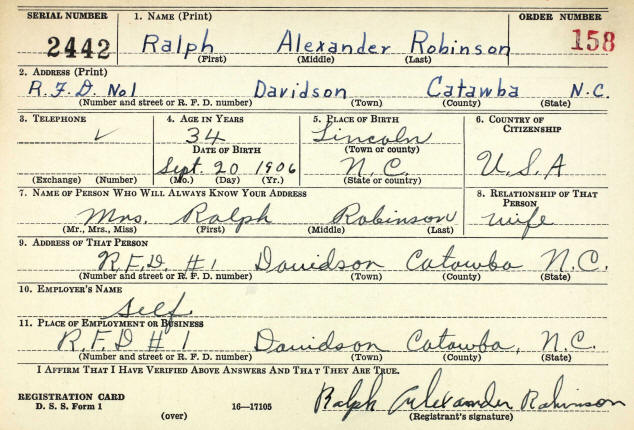 SERIAL NUMBER 1. NAME (Print) ORDER NUMBER
2442 Ralph Alexander Robinson 158
(First) (Middle) (Last)
2. ADDRESS (Print)
R.F.D. No1 Davidson Catawba N.C.
(Number and street or R. F. D. number) (Town) (County) (State)
3. TELEPHONE 4. AGE IN YEARS 5. PLACE OF BIRTH 6. COUNTRY OF CITIZENSHIP
34 Lincoln
DATE OF BIRTH (Town or county)
Sept. 20 1906 N.C. U.S.A
(Exchange) (Number) (Mo.) (Day) (Yr.) (State or country)
7. NAME OF PERSON WHO WILL ALWAYS KNOW YOUR ADDRESS 8. RELATIONSHIP OF THAT PERSON
Mrs. Ralph Robinson wife
(Mr., Mrs., Miss) (First) (Middle) (Last)
9. ADDRESS OF THAT PERSON
R.F.D. #1 Davidson Catawba N.C.
(Number and street or R. F. D. number) (Town) (County) (State)
10. EMPLOYER'S NAME
Self
11. PLACE OF EMPLOYMENT OR BUSINESS
R.F.D #1 Davidson Catawba, N.C.
(Number and street or R. F. D. number) (Town) (County) (State)
I AFFIRM THAT I HAVE VERIFIED ABOVE ANSWERS AND THAT THEY ARE TRUE.
REGISTRATION CARD Ralph Alexander Robinson
D. S. S. Form 1 (over) 16—17105 (Registrant's signature)